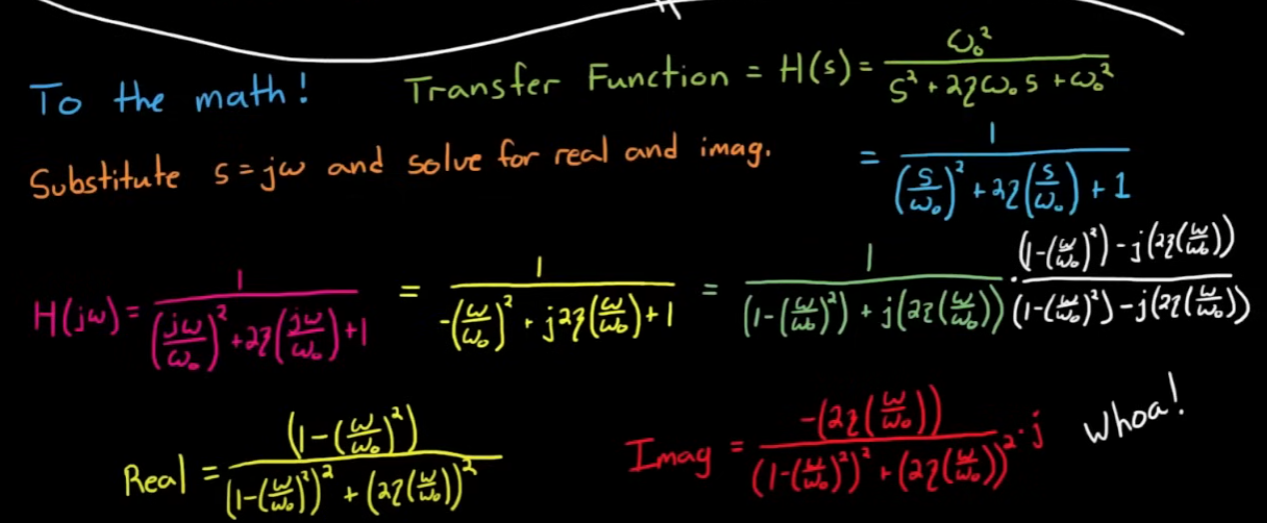 To the math! Transfer Function = H(s) = ω₀² / (s² + 2ζω₀s + ω₀²)
Substitute s=jω and solve for real and imag. = 1 / ((s/ω₀)² + 2ζ(s/ω₀) + 1)
H(jω) = 1 / ((jω/ω₀)² + 2ζ(jω/ω₀) + 1) = 1 / (-(ω/ω₀)² + j2ζ(ω/ω₀) + 1) = 1 / ((1-(ω/ω₀)²) + j(2ζ(ω/ω₀))) · ((1-(ω/ω₀)²) - j(2ζ(ω/ω₀))) / ((1-(ω/ω₀)²) - j(2ζ(ω/ω₀)))
Real = (1-(ω/ω₀)²) / ((1-(ω/ω₀)²)² + (2ζ(ω/ω₀))²) Imag = -(2ζ(ω/ω₀)) / ((1-(ω/ω₀)²)² + (2ζ(ω/ω₀))²) · j whoa!